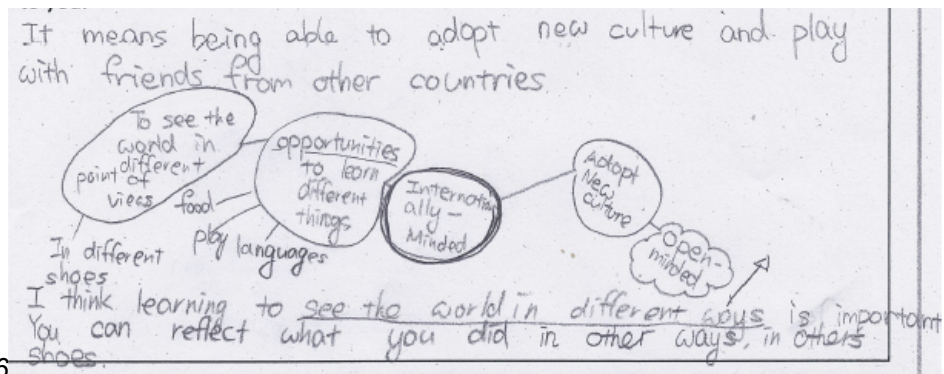 It means being able to adopt new culture and play
with friends from other countries.
To see the
world in
different
point of
views
In different
shoes
opportunities
to learn
different
things
food
play
languages
Internation
ally-
Minded
Adopt
New
Culture
Open-
minded
I think learning to see the world in different ways is important
You can reflect what you did in other ways, in others
shoes.
6